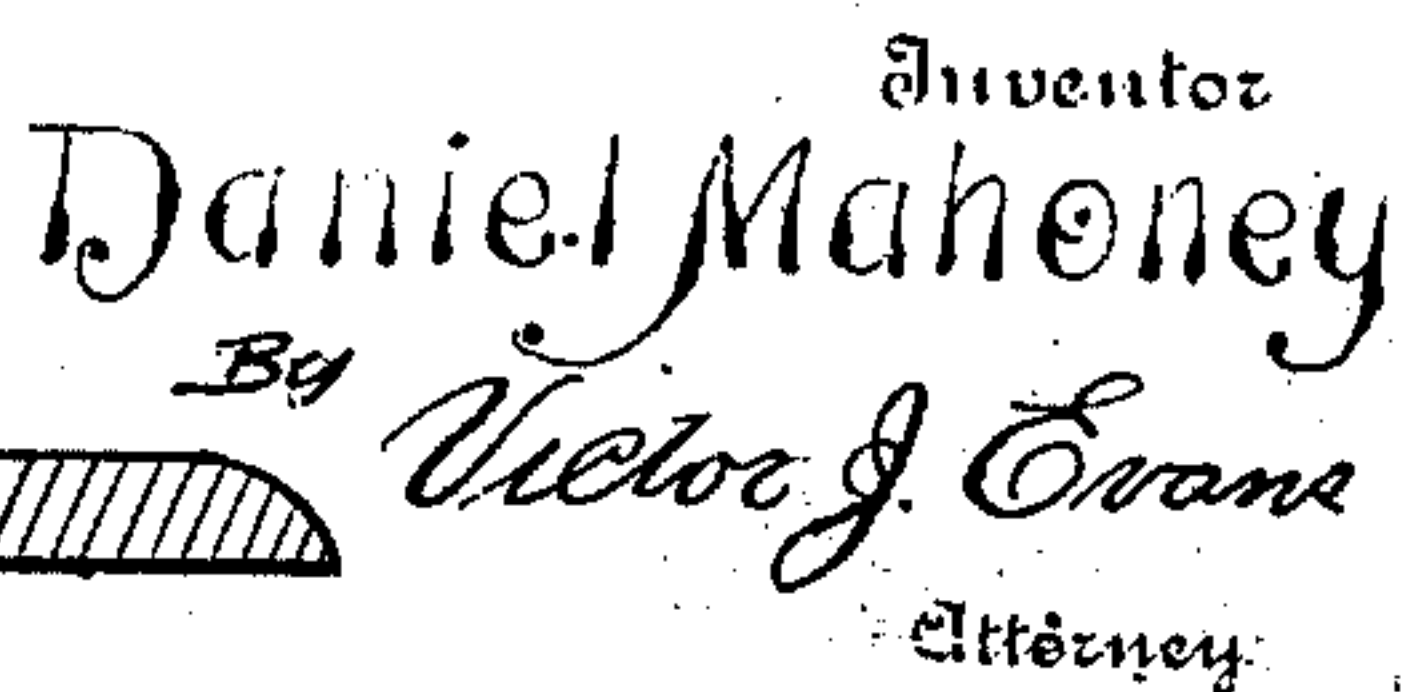 Inventor
Daniel Mahoney
By
Victor J. Evans
Attorney